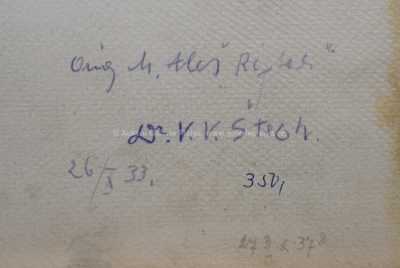 Orig M. Aleš "Rytíři"
Dr. V. V. Štech.
26/X 33,
350,
273 x 378